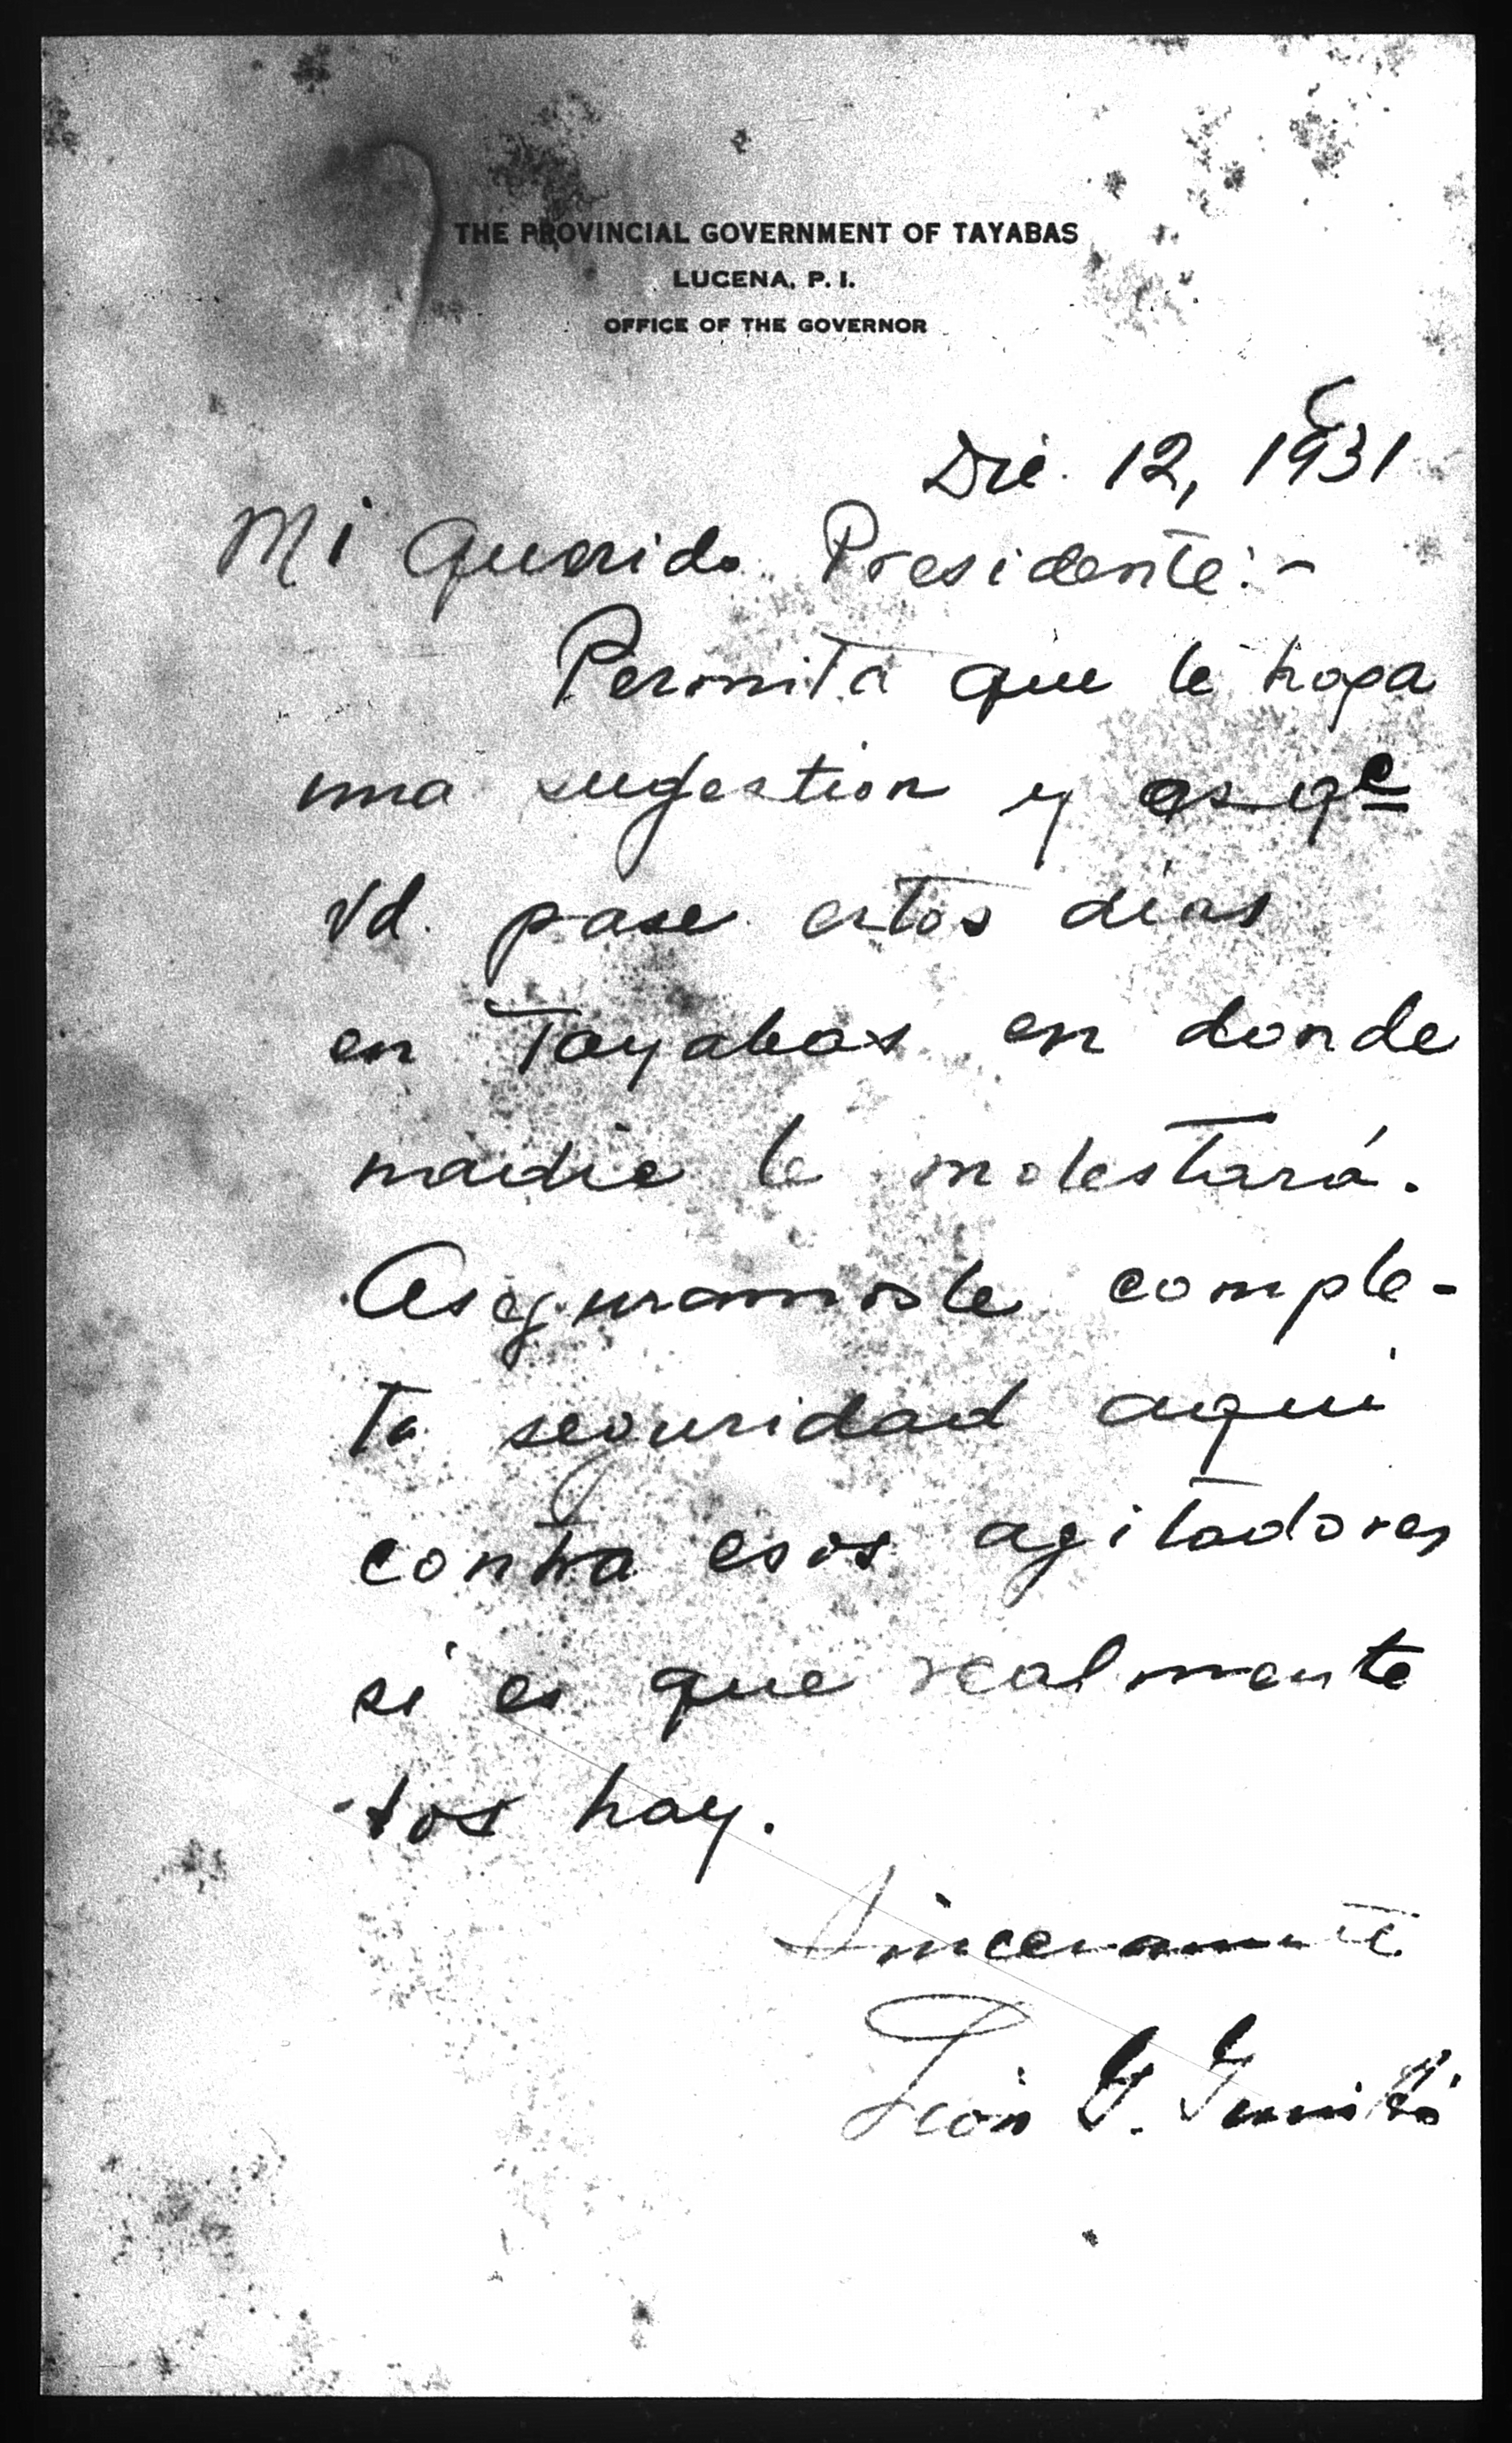 THE PROVINCIAL GOVERNMENT OF TAYABAS
LUCENA, P. I.
OFFICE OF THE GOVERNOR
Dic. 12, 1931
Mi Querido Presidente:-
Permita que le haga
una sugestion y es qe
Vd. pase estos dias
en Tayabas en donde
nadie le molestará.
Aseguramosle comple-
ta seguridad aqui
contra esos agitadores
si es que realmente
los hay.
Sinceramente
León G. Guinto